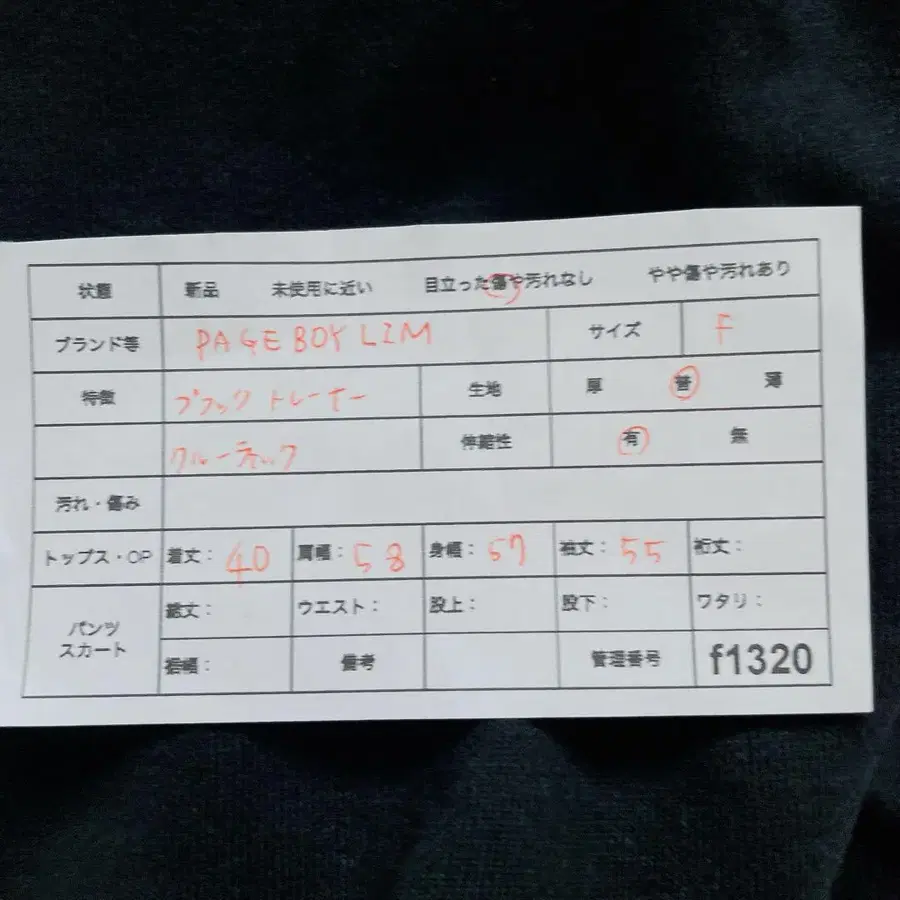 状態 新品 未使用に近い 目立った傷や汚れなし やや傷や汚れあり
ブランド等 PAGEBOY LIM サイズ F
特徴 ブラック トレーナー 生地 厚 普 薄
クルーネック 伸縮性 有 無
汚れ・傷み
トップス・OP 着丈: 40 肩幅: 58 身幅: 57 袖丈: 55 裄丈:
パンツ スカート 総丈: ウエスト: 股上: 股下: ワタリ:
裾幅: 備考 管理番号 f1320